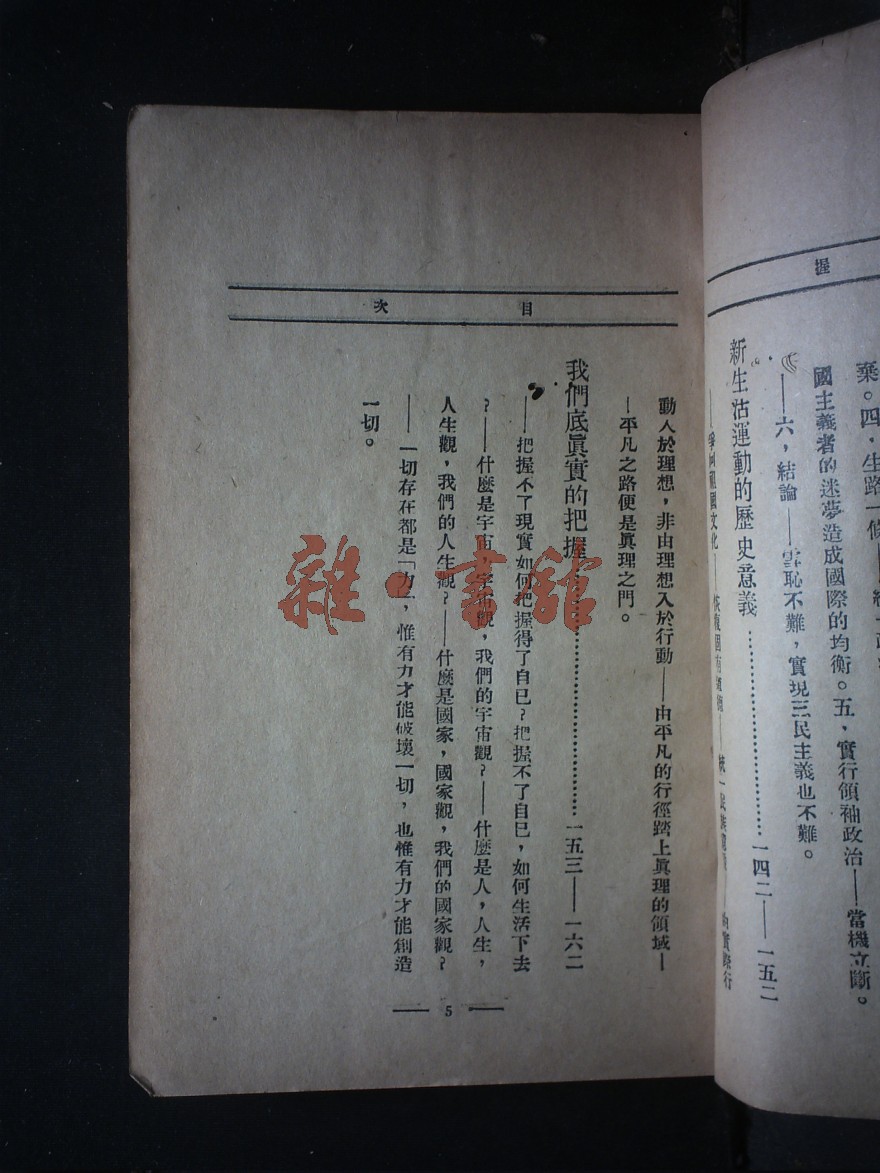 握
棄。四．生路一條——
國主義者的迷夢造成國際的均衡。五，實行領袖政治——當機立斷。
——六，結論——雪恥不難，實現三民主義也不難。
新生活運動的歷史意義………………一四二——一五二
目次
動入於理想，非由理想入於行動——由平凡的行徑踏上眞理的領域—
—平凡之路便是眞理之門。
我們底眞實的把握………………………一五三——一六二
——把握不了現實如何把握得了自已？把握不了自已，如何生活下去
？——什麼是宇宙，宇宙觀，我們的宇宙觀？——什麼是人，人生，
人生觀，我們的人生觀？——什麼是國家，國家觀，我們的國家觀？
——一切存在都是「力」，惟有力才能破壞一切，也惟有力才能創造
一切。
— 5 —
雜·書館